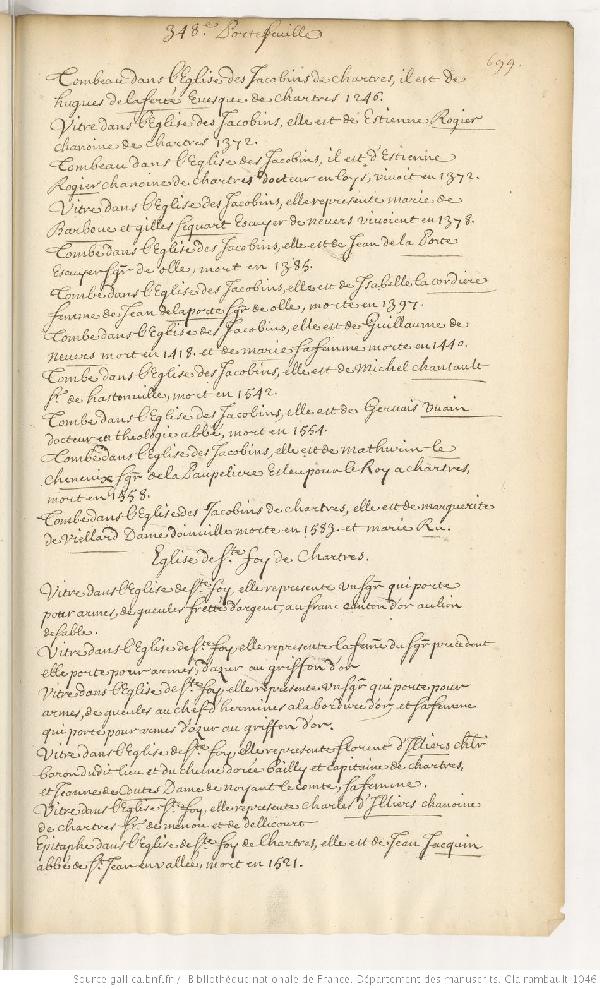 348.e Portefeuille
699.
Tombeau dans l'Eglise des Jacobins de chartres, il est de
hugues de la ferté Evesque de chartres 1246.
Vitre dans l'Eglise des Jacobins, elle est de Estienne Rogier
chanoine de chartres 1372.
Tombeau dans l'Eglise des Jacobins, il est d'Estienne
Rogier chanoine de chartres docteur en loys, vivoit en 1372.
Vitre dans l'Eglise des Jacobins, elle represente marie de
Barboue et gilles Siquart Escuyer de nevers vivoient en 1378.
Tombe dans l'Eglise des Jacobins, elle est de Jean de la Porte
Escuyer sgr. de olle, mort en 1385.
Tombe dans l'Eglise des Jacobins, elle est de Isabelle la cordiere
femme de Jean de la porte sgr. de olle, morte en 1397.
Tombe dans l'Eglise des Jacobins, elle est de Guillaume de
neuves mort en 1418. et de marie sa femme morte en 1440.
Tombe dans l'Eglise des Jacobins, elle est de Michel chantault
sr. de hastonville, mort en 1542.
Tombe dans l'Eglise des Jacobins, elle est de Gervais
docteur et theologie abbé, mort en 1554.
Tombe dans l'Eglise des Jacobins, elle est de mathurin le
cheneuix sgr. de la Paupeliere Esleu pour le Roy a chartres,
mort en 1558.
Tombe dans l'Eglise des Jacobins de chartres, elle est de marguerite
de Viellard Dame doinville morte en 1583. et marie Ru.
Eglise de Ste. Foy de Chartres.
Vitre dans l'Eglise de Ste. Foy, elle represente un sgr. qui porte
pour armes, de gueules fretté d'argent, au franc canton d'or au lion
de sable.
Vitre dans l'Eglise de Ste. Foy, elle represente la femē du sgr. precedent
elle porte pour armes, d'azur au griffon d'or
Vitre dans l'Eglise de Ste. Foy, elle represente un sgr. qui porte pour
armes, de gueules au chef d'hermines a la bordure d'or, et sa femme
qui porte pour armes d'azur au griffon d'or.
Vitre dans l'Eglise de Ste. Foy, elle represente florent d'Illiers chlr
baron dudit lieu et du chesne dorée bailly et capitaine de chartres,
et Jeanne de Coutes Dame de noyant le comte, sa femme.
Vitre dans l'Eglise Ste. Foy, elle represente Charles d'Illiers chanoine
de chartres sr. de menou et de dellicourt
Epitaphe dans l'Eglise de Ste. Foy de Chartres, elle est de Jean Jacquin
abbé de St. Jean en vallée, mort en 1521.
Source gallica.bnf.fr / Bibliothèque nationale de France. Département des manuscrits. Clairambault 1046